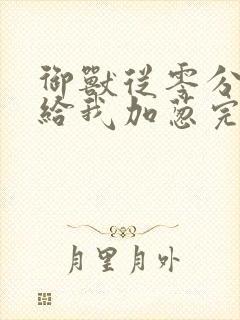 御獸從零分
給我加蔥完
月里月外